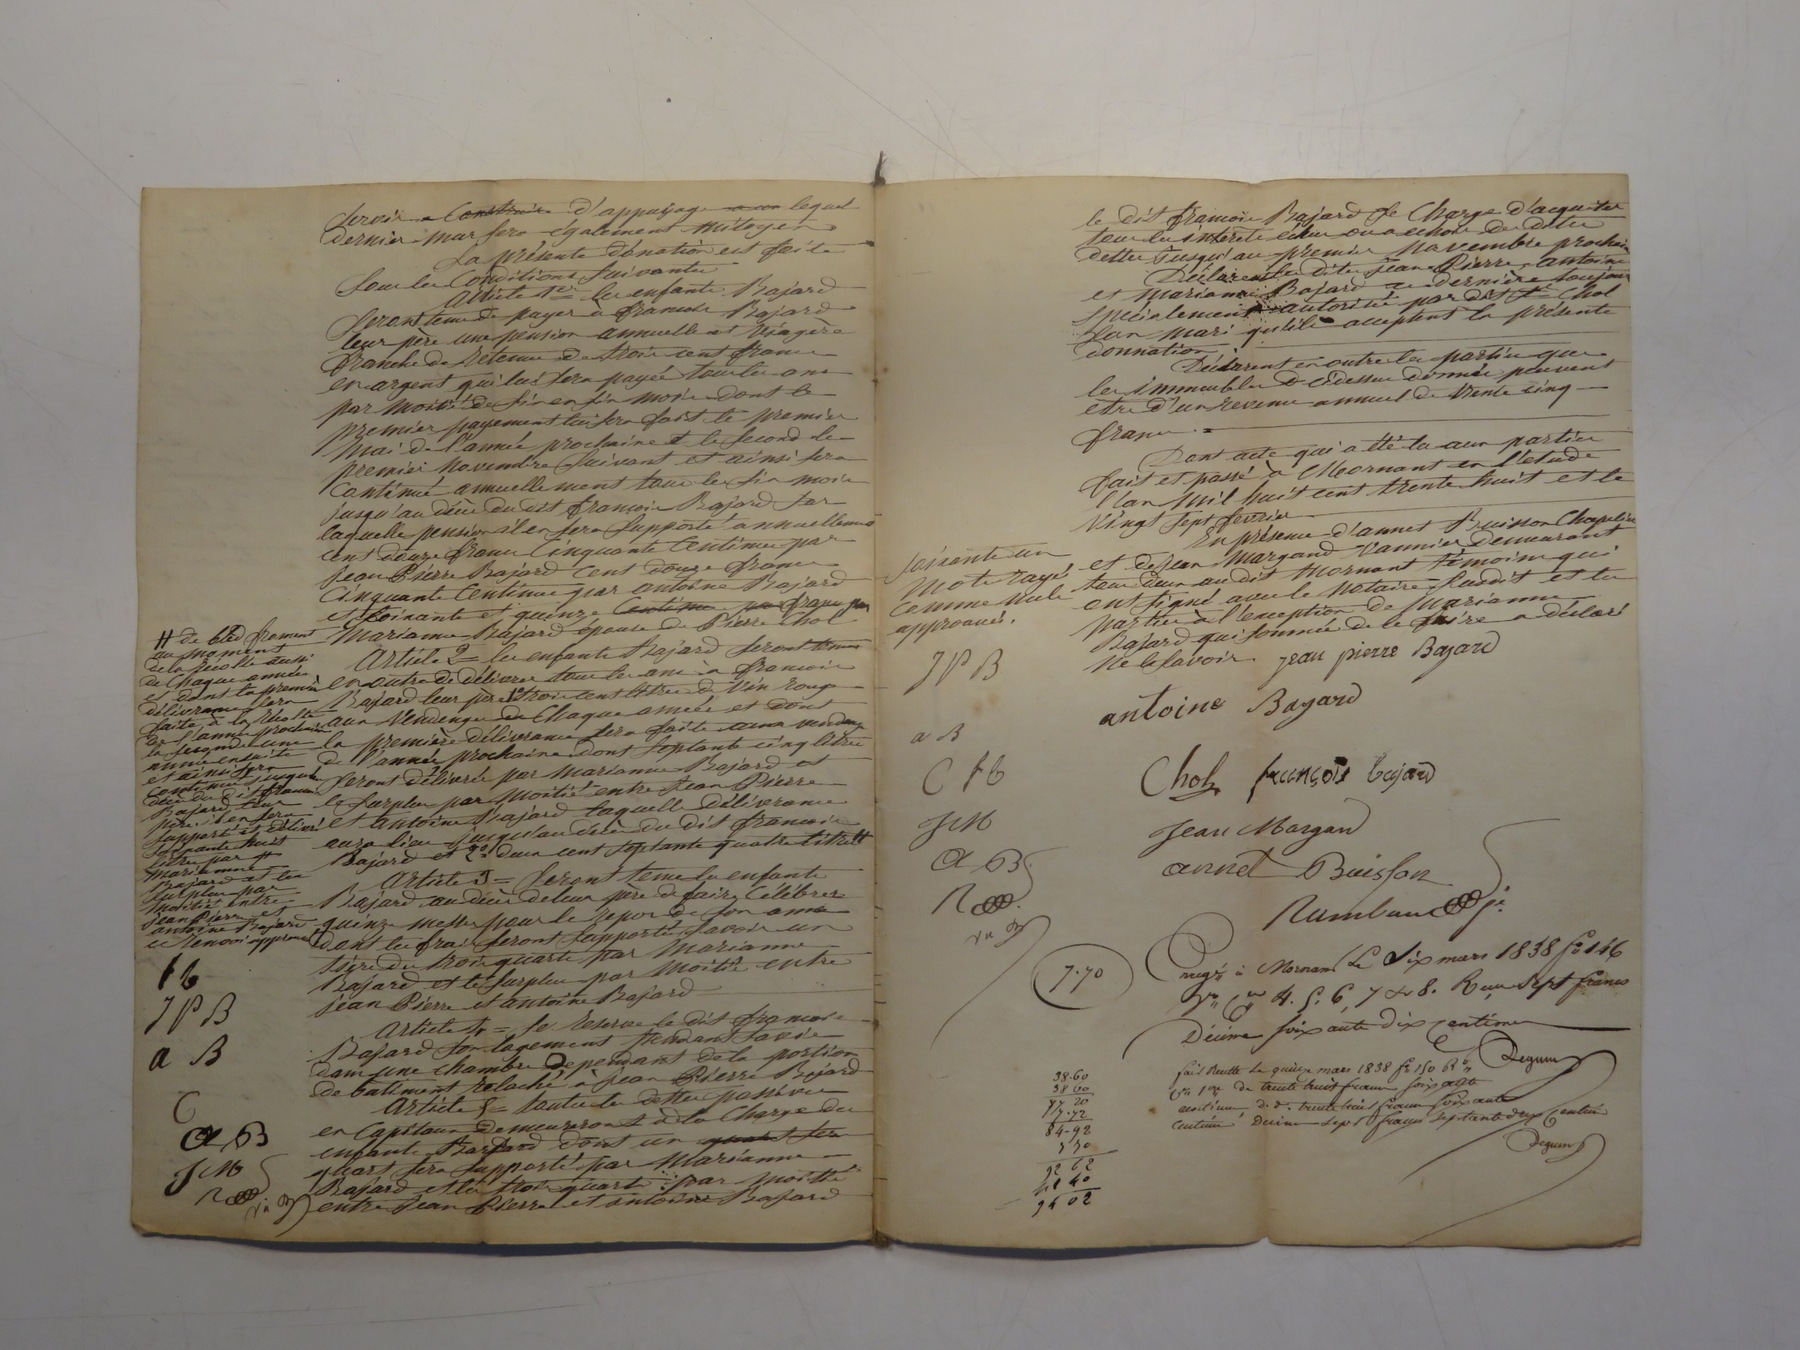 servir a Construire d'appuyage a un lequel
dernier mur sera également mitoyen
La présente donation est faite
sous les Conditions suivantes
Article 1er = les enfants Bajard
seront tenus de payer à francois Bajard
leur père une pension annuelle et viagère
franche de retenue de trois cent francs
en argent qui lui sera payée tous les ans
par moitié de six en six mois dont le
premier payement lui sera fait le premier
mai de l'année prochaine et le second le
premier novembre suivant et ainsi sera
Continué annuellement tous les six mois
jusqu'au décès du dit francois Bajard sur
laquelle pension il en sera supporté annuellement
cent douze francs Cinquante Centimes par
jean Pierre Bajard Cent douze francs
Cinquante Centimes par antoine Bajard
et soixante et quinze Centimes par francs par
Marianne Bajard épouse de Pierre Chol
Article 2 = les enfants Bajard seront tenus
en outre de délivrer tous les ans à francois
Bajard leur père 1° trois cent litres de vin rouge
aux Vendanges de Chaque année et dont
la première délivrance sera faite aux vendanges
de l'année prochaine dont soptante cinq litres
seront délivrés par Marianne Bajard et
le surplus par moitié entre Jean Pierre
et Antoine Bajard laquelle délivrance
aura lieu jusqu'au décès du dit francois
Bajard et 2° deux cent soptante quatre litres #
Article 3 = seront tenus les enfants
Bajard au décès de leur père de faire Célébrer
quinze messes pour le repos de son ame
dont les frais seront supportés savoir un
tiers des trois quarts par Marianne
Bajard et le surplus par moitié entre
jean Pierre et antoine Bajard
Article 4 = se réserve le dit francois
Bajard son logement pendant sa vie
dans une chambre Dependant de la portion
de batiment relaché à jean Pierre Bajard
Article 5 = toutes les dettes passives
en Capitaux demeureront à la Charge des
enfants Bajard dont un quart sera
quart sera supporté par Marianne
Bajard et les trois quarts par moitié
entre Jean Pierre et antoine Bajard
# de bled froment
au moment
de la récolte aussi
de Chaque année
et dont la première
délivrance sera
faite à la récolte
de l'année prochaine
la seconde une
année ensuite
et ainsi sera
continué jusqu'au
décès du dit francois
Bajard leur
père il en sera
supporté et délivré
soixante huit
litres par #
Marianne
Bajard et le
surplus par
moitié entre
jean Pierre et
antoine Bajard
ce renvoi approuvé
f b
J P B
a B
C
A B
J M
le dit francois Bajard se Charge d'acquitter
tous les intérêts échus ou a echoir des dites
dettes jusqu'au premier novembre prochain
Déclarent les dits Jean Pierre, antoine
et Marianne Bajard ce dernière toujours
spécialement autorisée par dit Sr Chol
son mari qu'ils acceptent la présente
donnation
Déclarent en outre les parties que
les immeubles ci dessus donnés peuvent
etre d'un revenu annuel de trente cinq
francs
Dont acte qui a été lu aux parties
fait et passé à Mornant en l'etude
l'an Mil huit cent trente huit et le
Vingt sept fevrier
En présence d'annet Buisson Chapelier
et de Jean Margand Vannier demeurant
tous deux au dit Mornant témoins qui
ont signé avec le Notaire susdit et les
parties à l'exception de Marianne
Bajard qui sommée de le faire a déclaré
ne le savoir jean pierre Bajard
soixante un
mots rayés
comme nuls
approuvés.
J P B
a B
C f b
J M
A B
antoine Bayard
Chol francois bajard
Jean Margand
annet Buisson
7.70
Enregé à Mornant Le Six mars 1838 fo 146
Vo Ces 4. 5. 6, 7 & 8. Reçu Sept francs
Décime soixante dix centimes
Degum
38.60
38 60
77 20
7.72
84-92
7 70
92 62
1 40
94 02